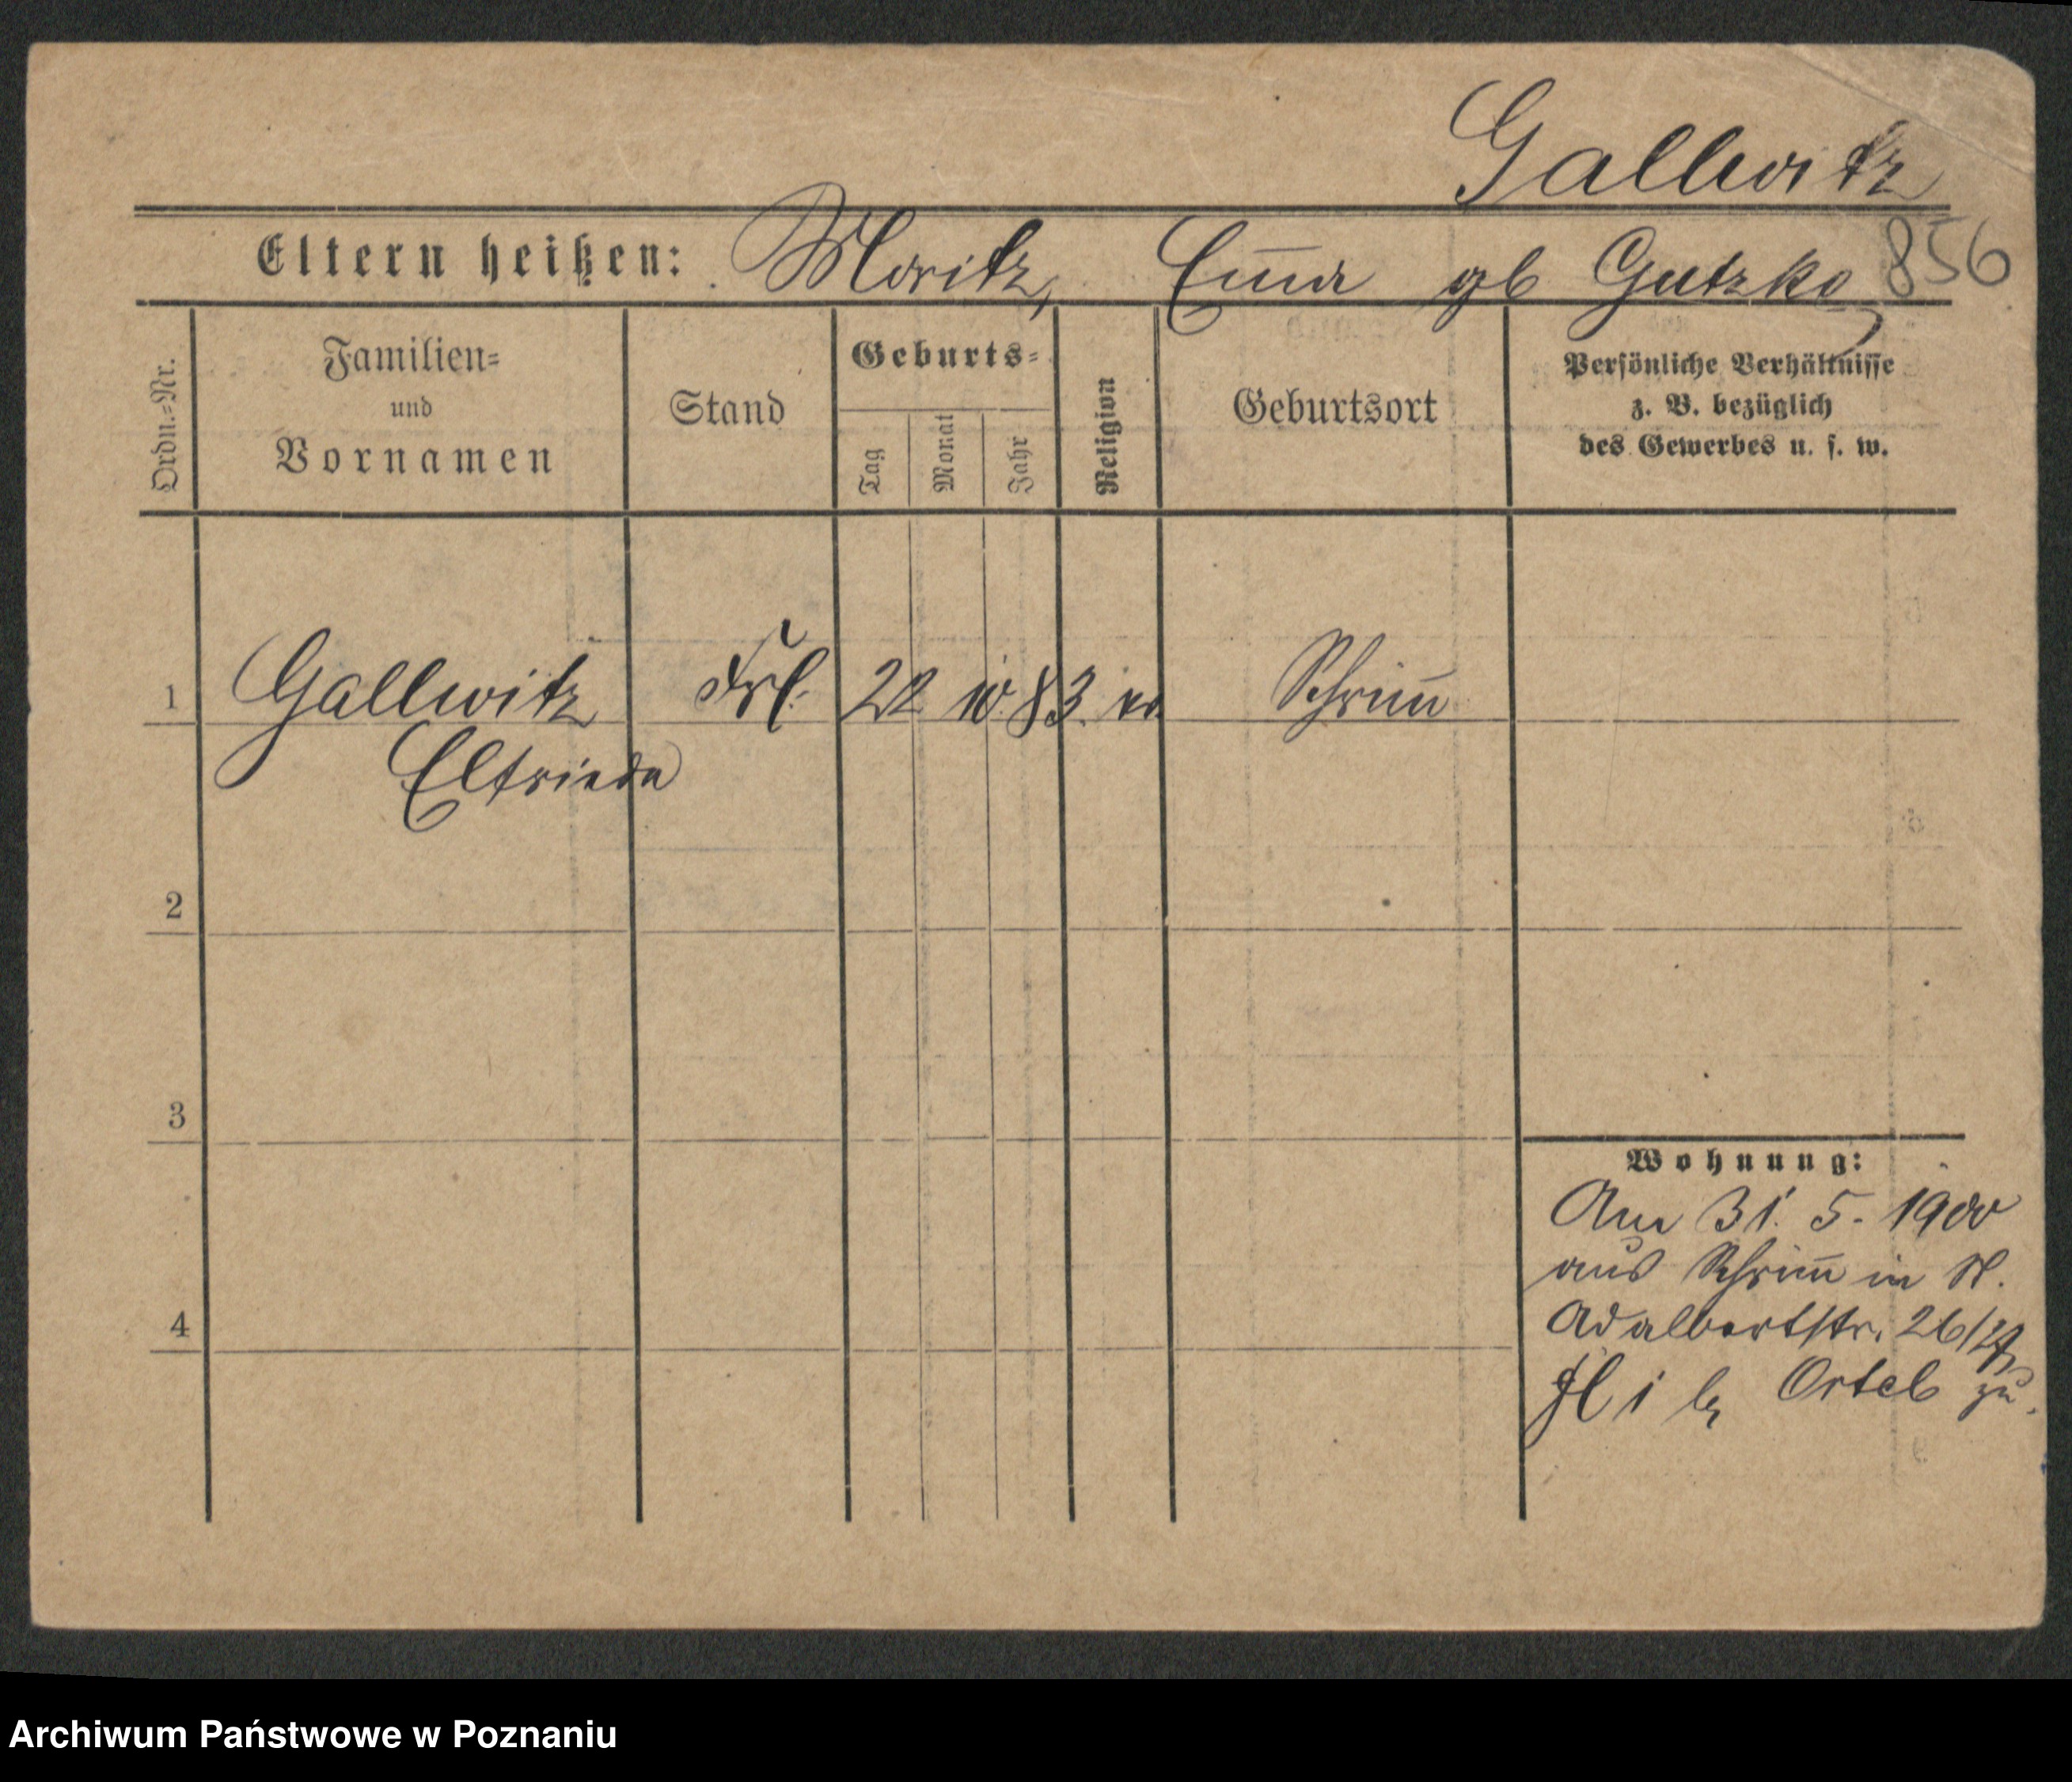 Gallwitz
Eltern heißen: Moritz, Em̄a gb Gutzko 856
Ordn.=Nr.
Familien=
und
Vornamen
Stand
Geburts=
Tag
Monat
Jahr
Religion
Geburtsort
Persönliche Verhältnisse
z. B. bezüglich
des Gewerbes u. s. w.
1 Gallwitz Frl. 22 10. 83. ev. Schrim̄
Elfriede
2
3
4
Wohnung:
Am 31. 5. 1900
aus Schrim̄ in St.
Adalbertstr. 26/27
Ortel zu.
Archiwum Państwowe w Poznaniu